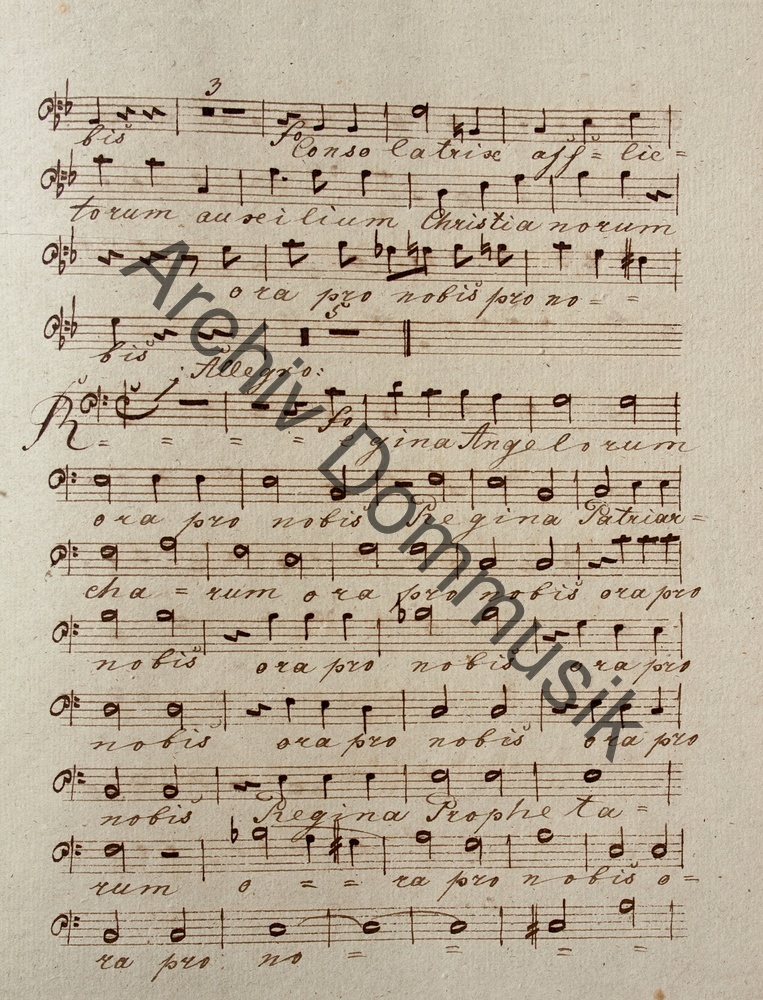 3
bis fo Conso latrix aff = lic =
torum auxilium Christia norum
ora pro nobis pro no = =
5
bis
Allegro:
fo
R = = = = e gina Angelorum
ora pro nobis Regina Patriar =
cha = rum ora pro nobis ora pro
nobis ora pro nobis ora pro
nobis ora pro nobis ora pro
nobis Regina Propheta =
rum o = = ra pro nobis o =
ra pro no = = = =
Archiv Dommusik